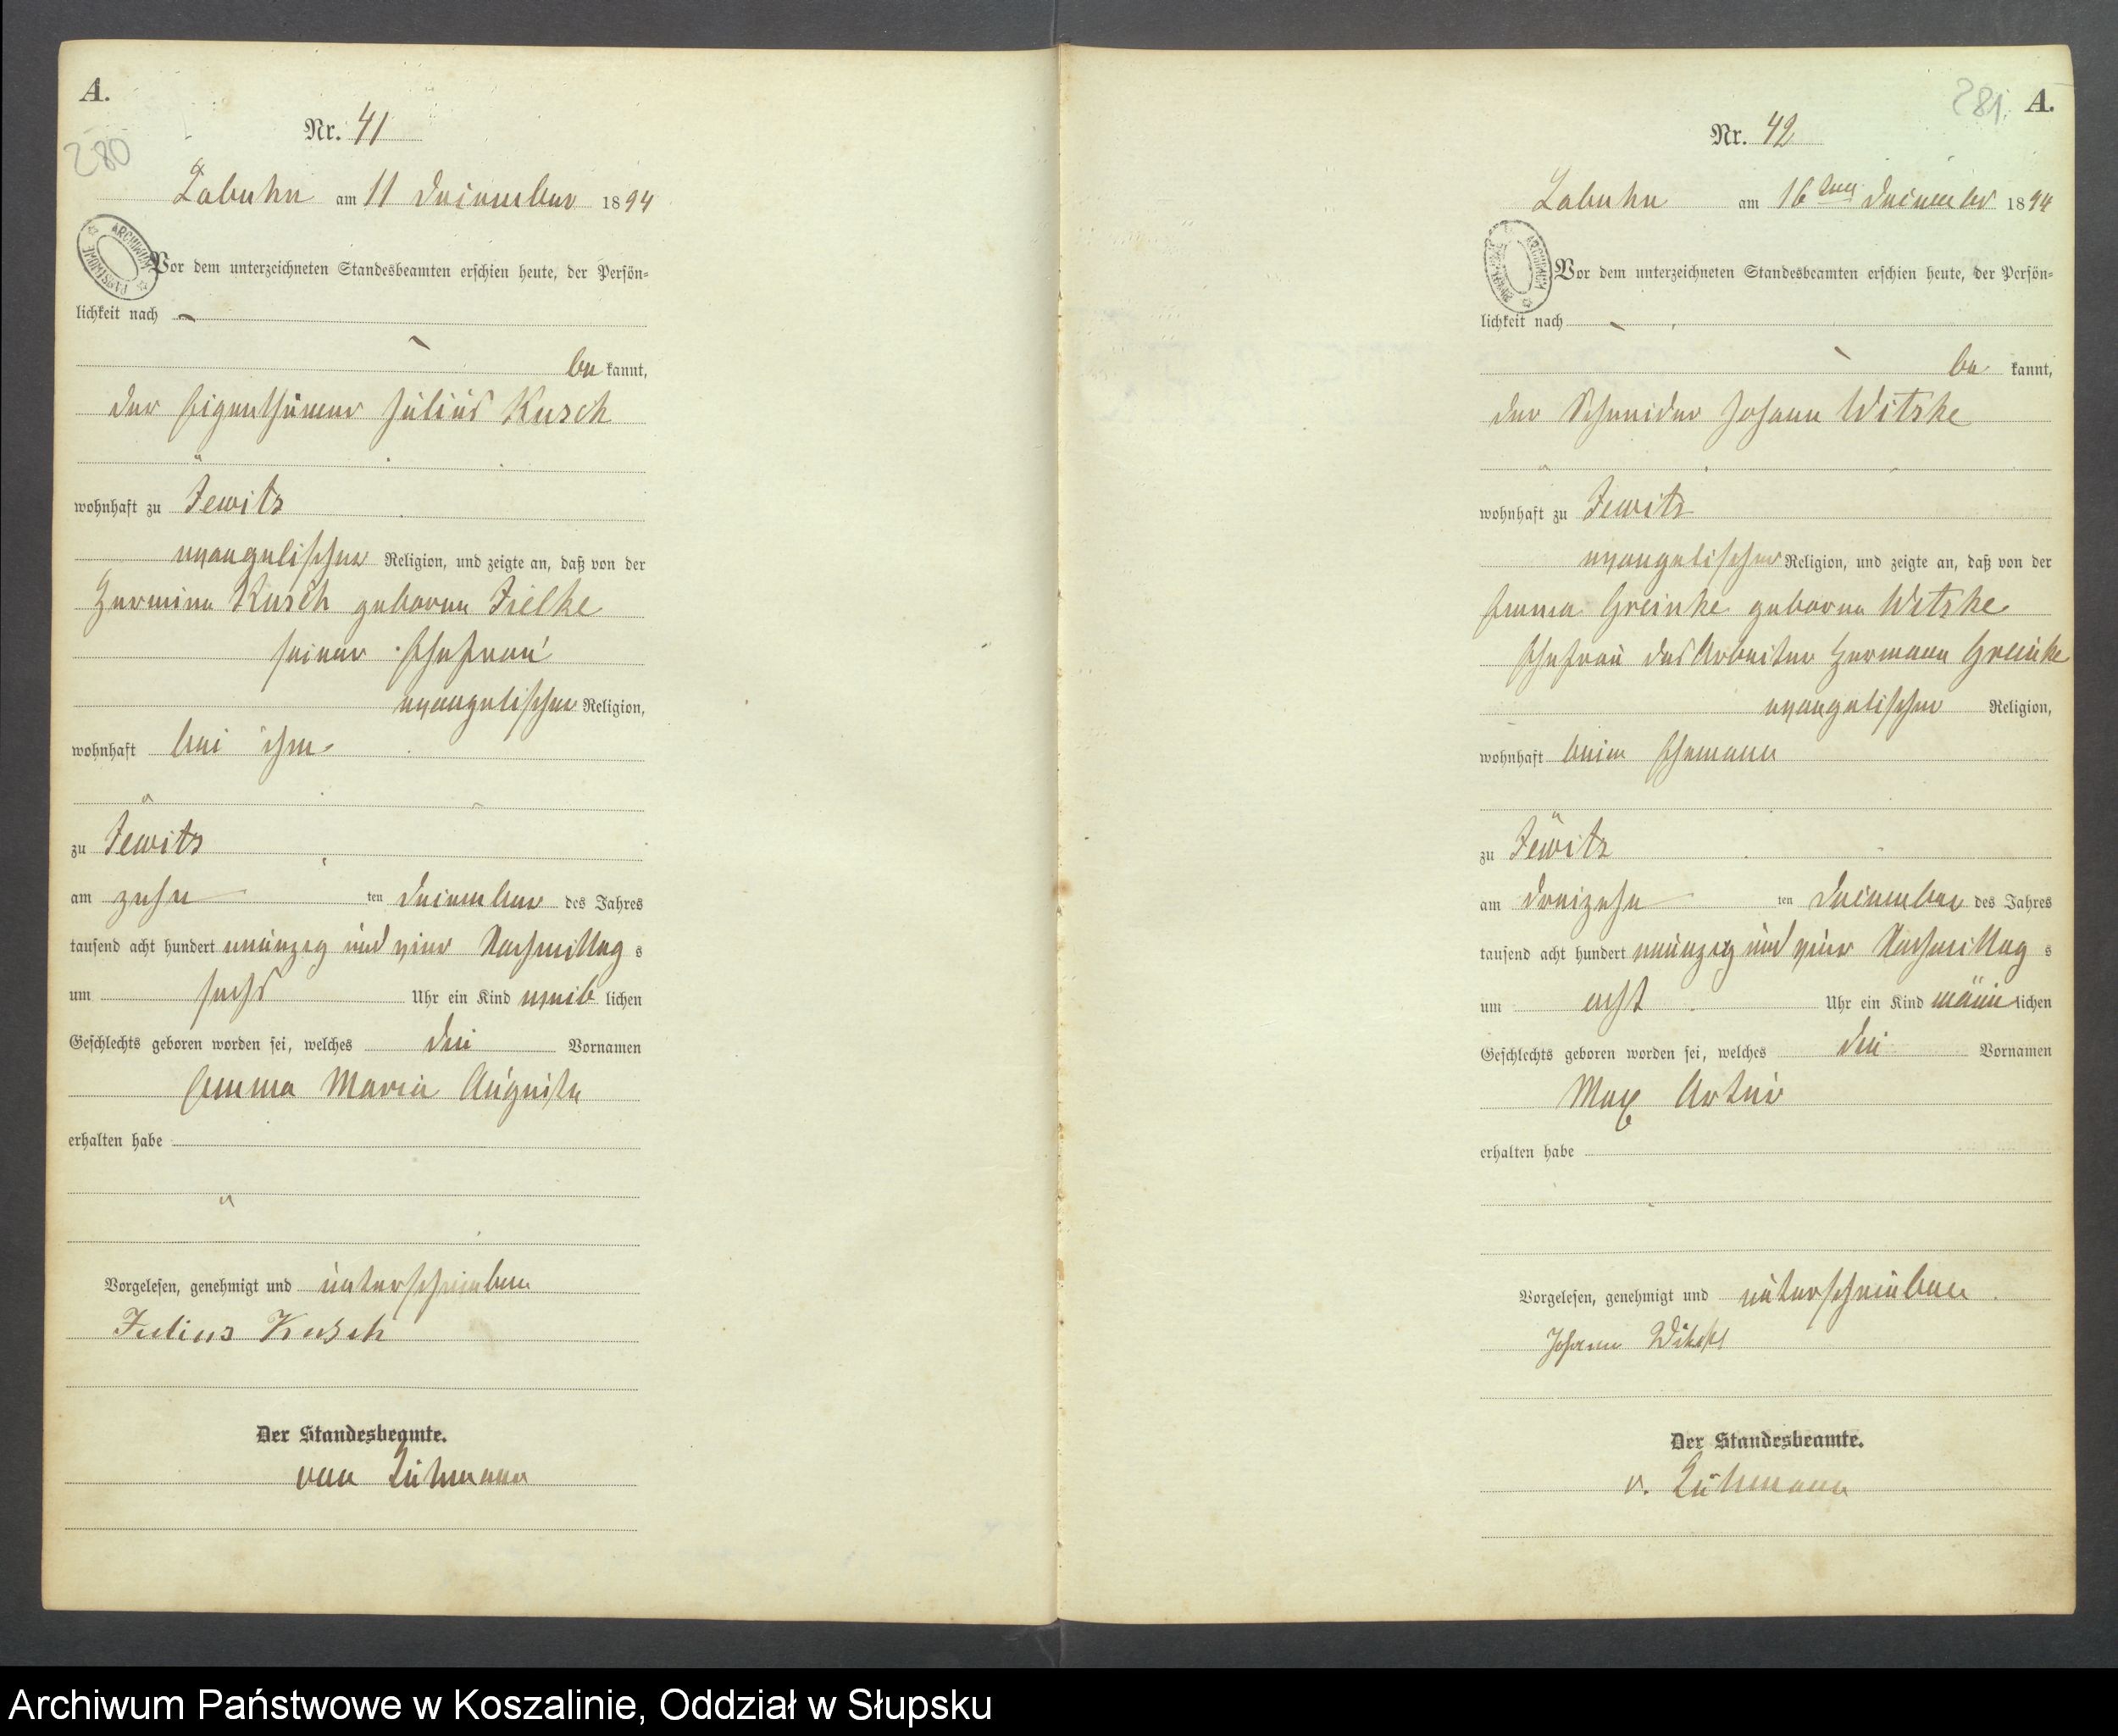 A.
280
Nr. 41
Labuhn am 11 December 1894
ARCHIWUM PAŃSTWOWE
Vor dem unterzeichneten Standesbeamten erschien heute, der Persön=
lichkeit nach
be kannt,
der Eigenthümer Julius Kusch
wohnhaft zu Jewitz
evangelischer Religion, und zeigte an, daß von der
Hermine Kusch geborene Zielke
seiner Ehefrau
evangelischer Religion,
wohnhaft bei ihm
zu Jewitz
am zehn ten December des Jahres
tausend acht hundert neunzig und vier Nachmittag s
um sechs Uhr ein Kind weib lichen
Geschlechts geboren worden sei, welches die Vornamen
Emma Maria Auguste
erhalten habe
Vorgelesen, genehmigt und unterschrieben
Julius Kusch
Der Standesbeamte.
von Lühmann
281
A.
Nr. 42
Labuhn am 16ten December 1894
ARCHIWUM
Vor dem unterzeichneten Standesbeamten erschien heute, der Persön=
lichkeit nach
be kannt,
der Schneider Johann Witzke
wohnhaft zu Jewitz
evangelischer Religion, und zeigte an, daß von der
Emma Greinke geborene Witzke
Ehefrau des Arbeiter Hermann Greinke
evangelischer Religion,
wohnhaft beim Ehemann
zu Jewitz
am dreizehn ten December des Jahres
tausend acht hundert neunzig und vier Nachmittag s
um acht Uhr ein Kind männ lichen
Geschlechts geboren worden sei, welches die Vornamen
Max Artur
erhalten habe
Vorgelesen, genehmigt und unterschrieben
Johann Witzke
Der Standesbeamte.
v. Lühmann
Archiwum Państwowe w Koszalinie, Oddział w Słupsku